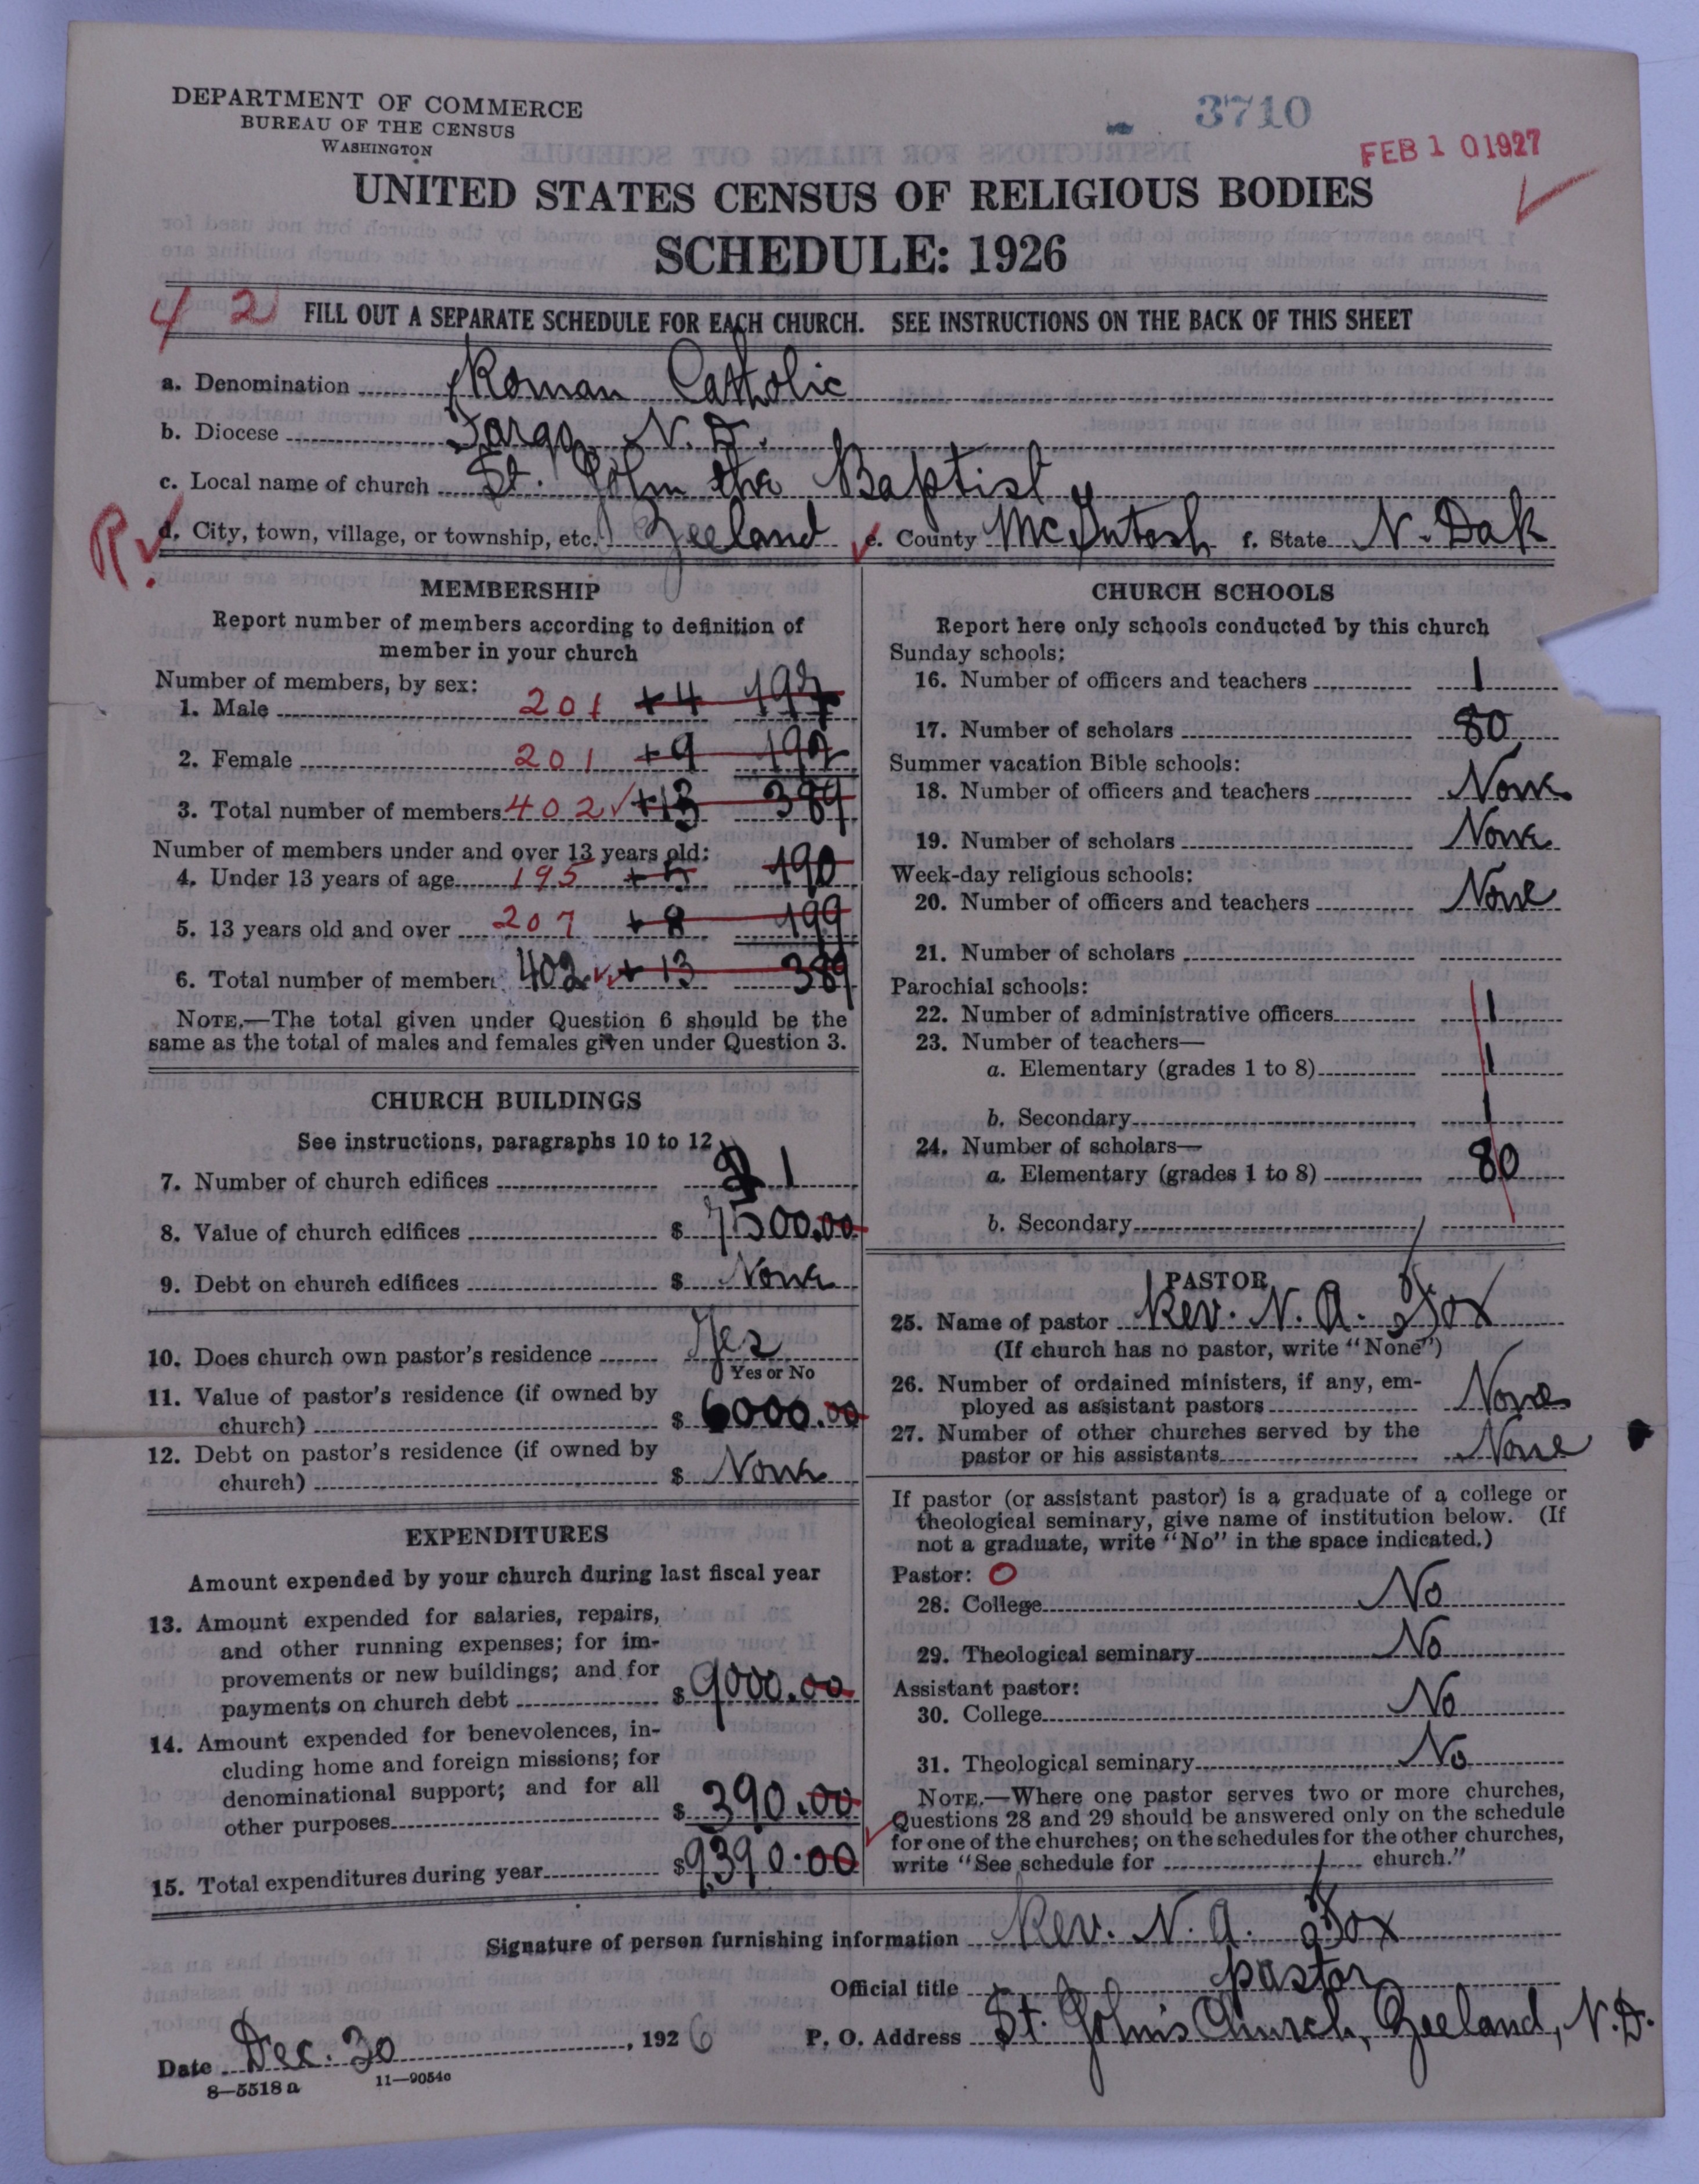 DEPARTMENT OF COMMERCE
BUREAU OF THE CENSUS
WASHINGTON
3710
FEB 10 1927
UNITED STATES CENSUS OF RELIGIOUS BODIES
SCHEDULE: 1926
4 2 FILL OUT A SEPARATE SCHEDULE FOR EACH CHURCH. SEE INSTRUCTIONS ON THE BACK OF THIS SHEET
a. Denomination Roman Catholic
b. Diocese Fargo, N. D.
c. Local name of church St. John the Baptist
R d. City, town, village, or township, etc. Zeeland e. County McIntosh f. State N. Dak
MEMBERSHIP
Report number of members according to definition of
member in your church
Number of members, by sex:
1. Male 201 +4 197
2. Female 201 +9 192
3. Total number of members 402 +13 389
Number of members under and over 13 years old:
4. Under 13 years of age 195 +5 190
5. 13 years old and over 207 +8 199
6. Total number of members 402 +13 389
NOTE.—The total given under Question 6 should be the
same as the total of males and females given under Question 3.
CHURCH BUILDINGS
See instructions, paragraphs 10 to 12
7. Number of church edifices 1
8. Value of church edifices $ 7500.00
9. Debt on church edifices $ None
10. Does church own pastor's residence Yes
Yes or No
11. Value of pastor's residence (if owned by
church) $ 6000.00
12. Debt on pastor's residence (if owned by
church) $ None
EXPENDITURES
Amount expended by your church during last fiscal year
13. Amount expended for salaries, repairs,
and other running expenses; for im-
provements or new buildings; and for
payments on church debt $ 9000.00
14. Amount expended for benevolences, in-
cluding home and foreign missions; for
denominational support; and for all
other purposes $ 390.00
15. Total expenditures during year $ 9390.00
CHURCH SCHOOLS
Report here only schools conducted by this church
Sunday schools:
16. Number of officers and teachers 1
17. Number of scholars 80
Summer vacation Bible schools:
18. Number of officers and teachers None
19. Number of scholars None
Week-day religious schools:
20. Number of officers and teachers None
21. Number of scholars
Parochial schools:
22. Number of administrative officers 1
23. Number of teachers—
a. Elementary (grades 1 to 8) 1
b. Secondary 1
24. Number of scholars—
a. Elementary (grades 1 to 8) 80
b. Secondary
PASTOR
25. Name of pastor Rev. N. A. Fox
(If church has no pastor, write "None")
26. Number of ordained ministers, if any, em-
ployed as assistant pastors None
27. Number of other churches served by the
pastor or his assistants None
If pastor (or assistant pastor) is a graduate of a college or
theological seminary, give name of institution below. (If
not a graduate, write "No" in the space indicated.)
Pastor: O
28. College No
29. Theological seminary No
Assistant pastor:
30. College No
31. Theological seminary No
NOTE.—Where one pastor serves two or more churches,
Questions 28 and 29 should be answered only on the schedule
for one of the churches; on the schedules for the other churches,
write "See schedule for church."
Signature of person furnishing information Rev. N. A. Fox
Official title pastor
Date Dec. 30, 1926 P. O. Address St. John's Church, Zeeland, N.D.
8—5518 a 11—9054c